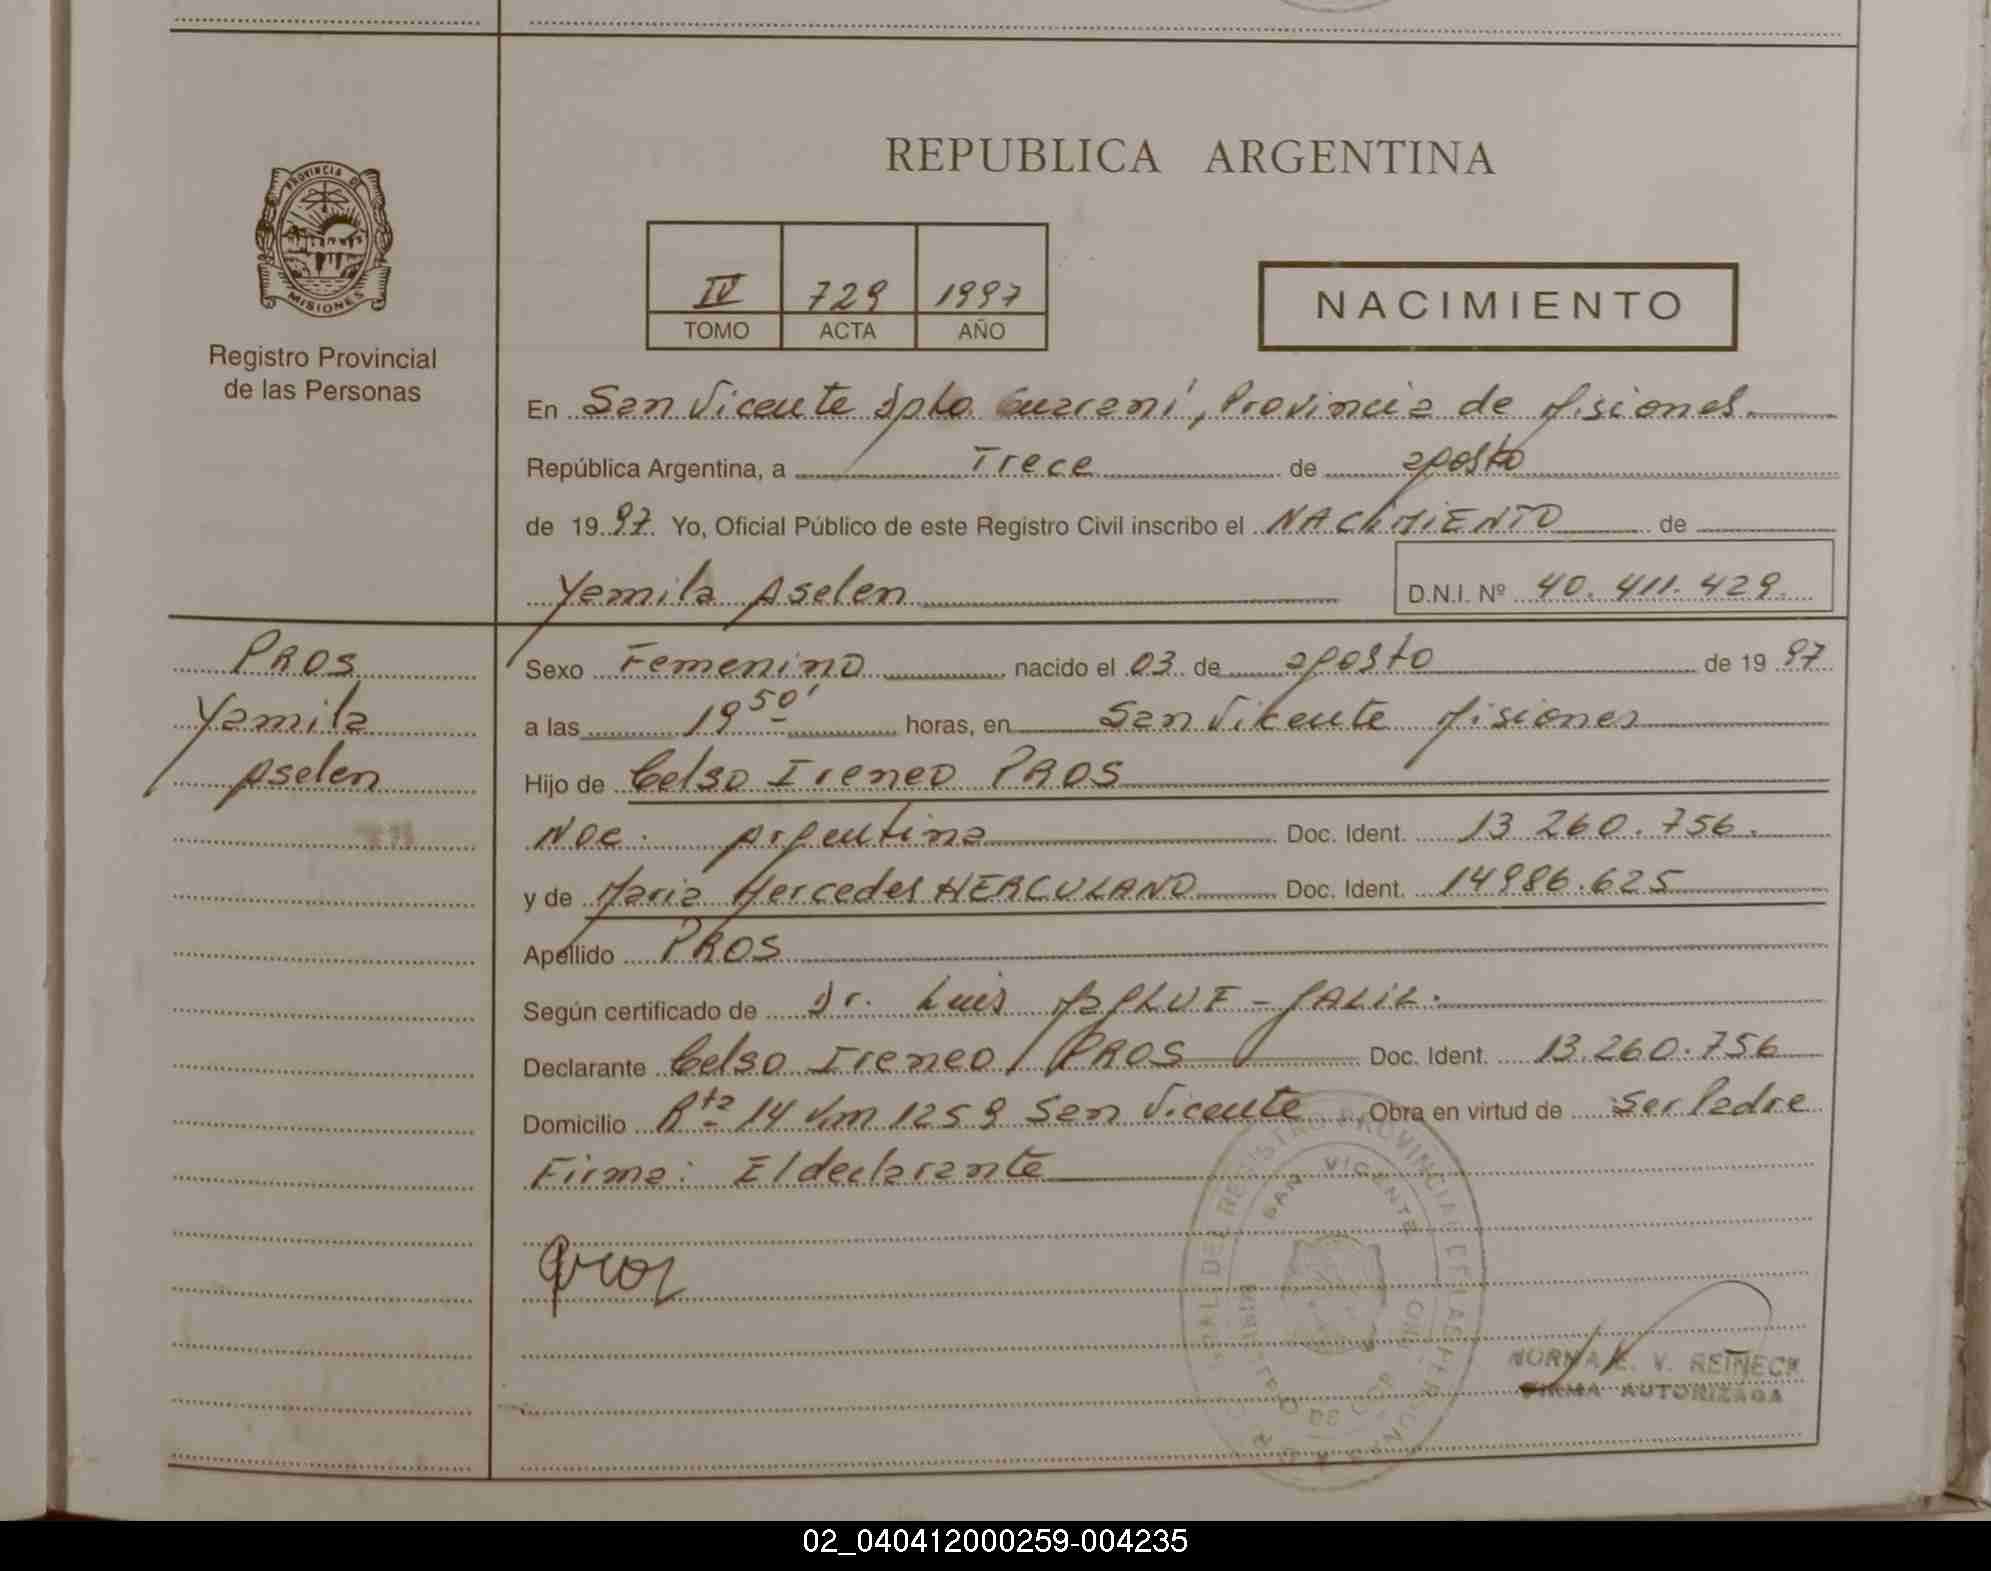 REPUBLICA ARGENTINA
PROVINCIA DE
MISIONES
Registro Provincial
de las Personas
IV 729 1997
TOMO ACTA AÑO
NACIMIENTO
En San Vicente Dpto. Guaraní, Provincia de Misiones.
República Argentina, a Trece de agosto
de 19 97. Yo, Oficial Público de este Registro Civil inscribo el NACIMIENTO de
Yamila Aselen D.N.I. Nº 40.411.429.
PROS
Yamila
Aselen
Sexo Femenino nacido el 03 de agosto de 19 97
a las 19 50' horas, en San Vicente Misiones
Hijo de Celso Ireneo PROS
Nac. Argentina Doc. Ident. 13 260.756.
y de Maria Mercedes HERCULANO Doc. Ident. 14986.625
Apellido PROS
Según certificado de Dr. Luis
Declarante Celso Ireneo PROS Doc. Ident. 13.260.756
Domicilio Rta 14 Km 1259 San Vicente Obra en virtud de Ser Padre
Firma: El declarante
SAN VICENTE
NORMA E. V. REINECK
FIRMA AUTORIZADA
02_040412000259-004235